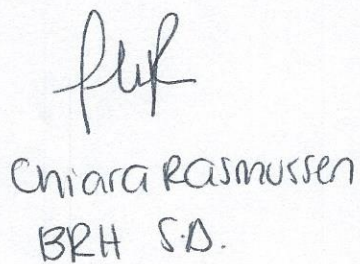 Chiara Rasmussen
BRH S.D.